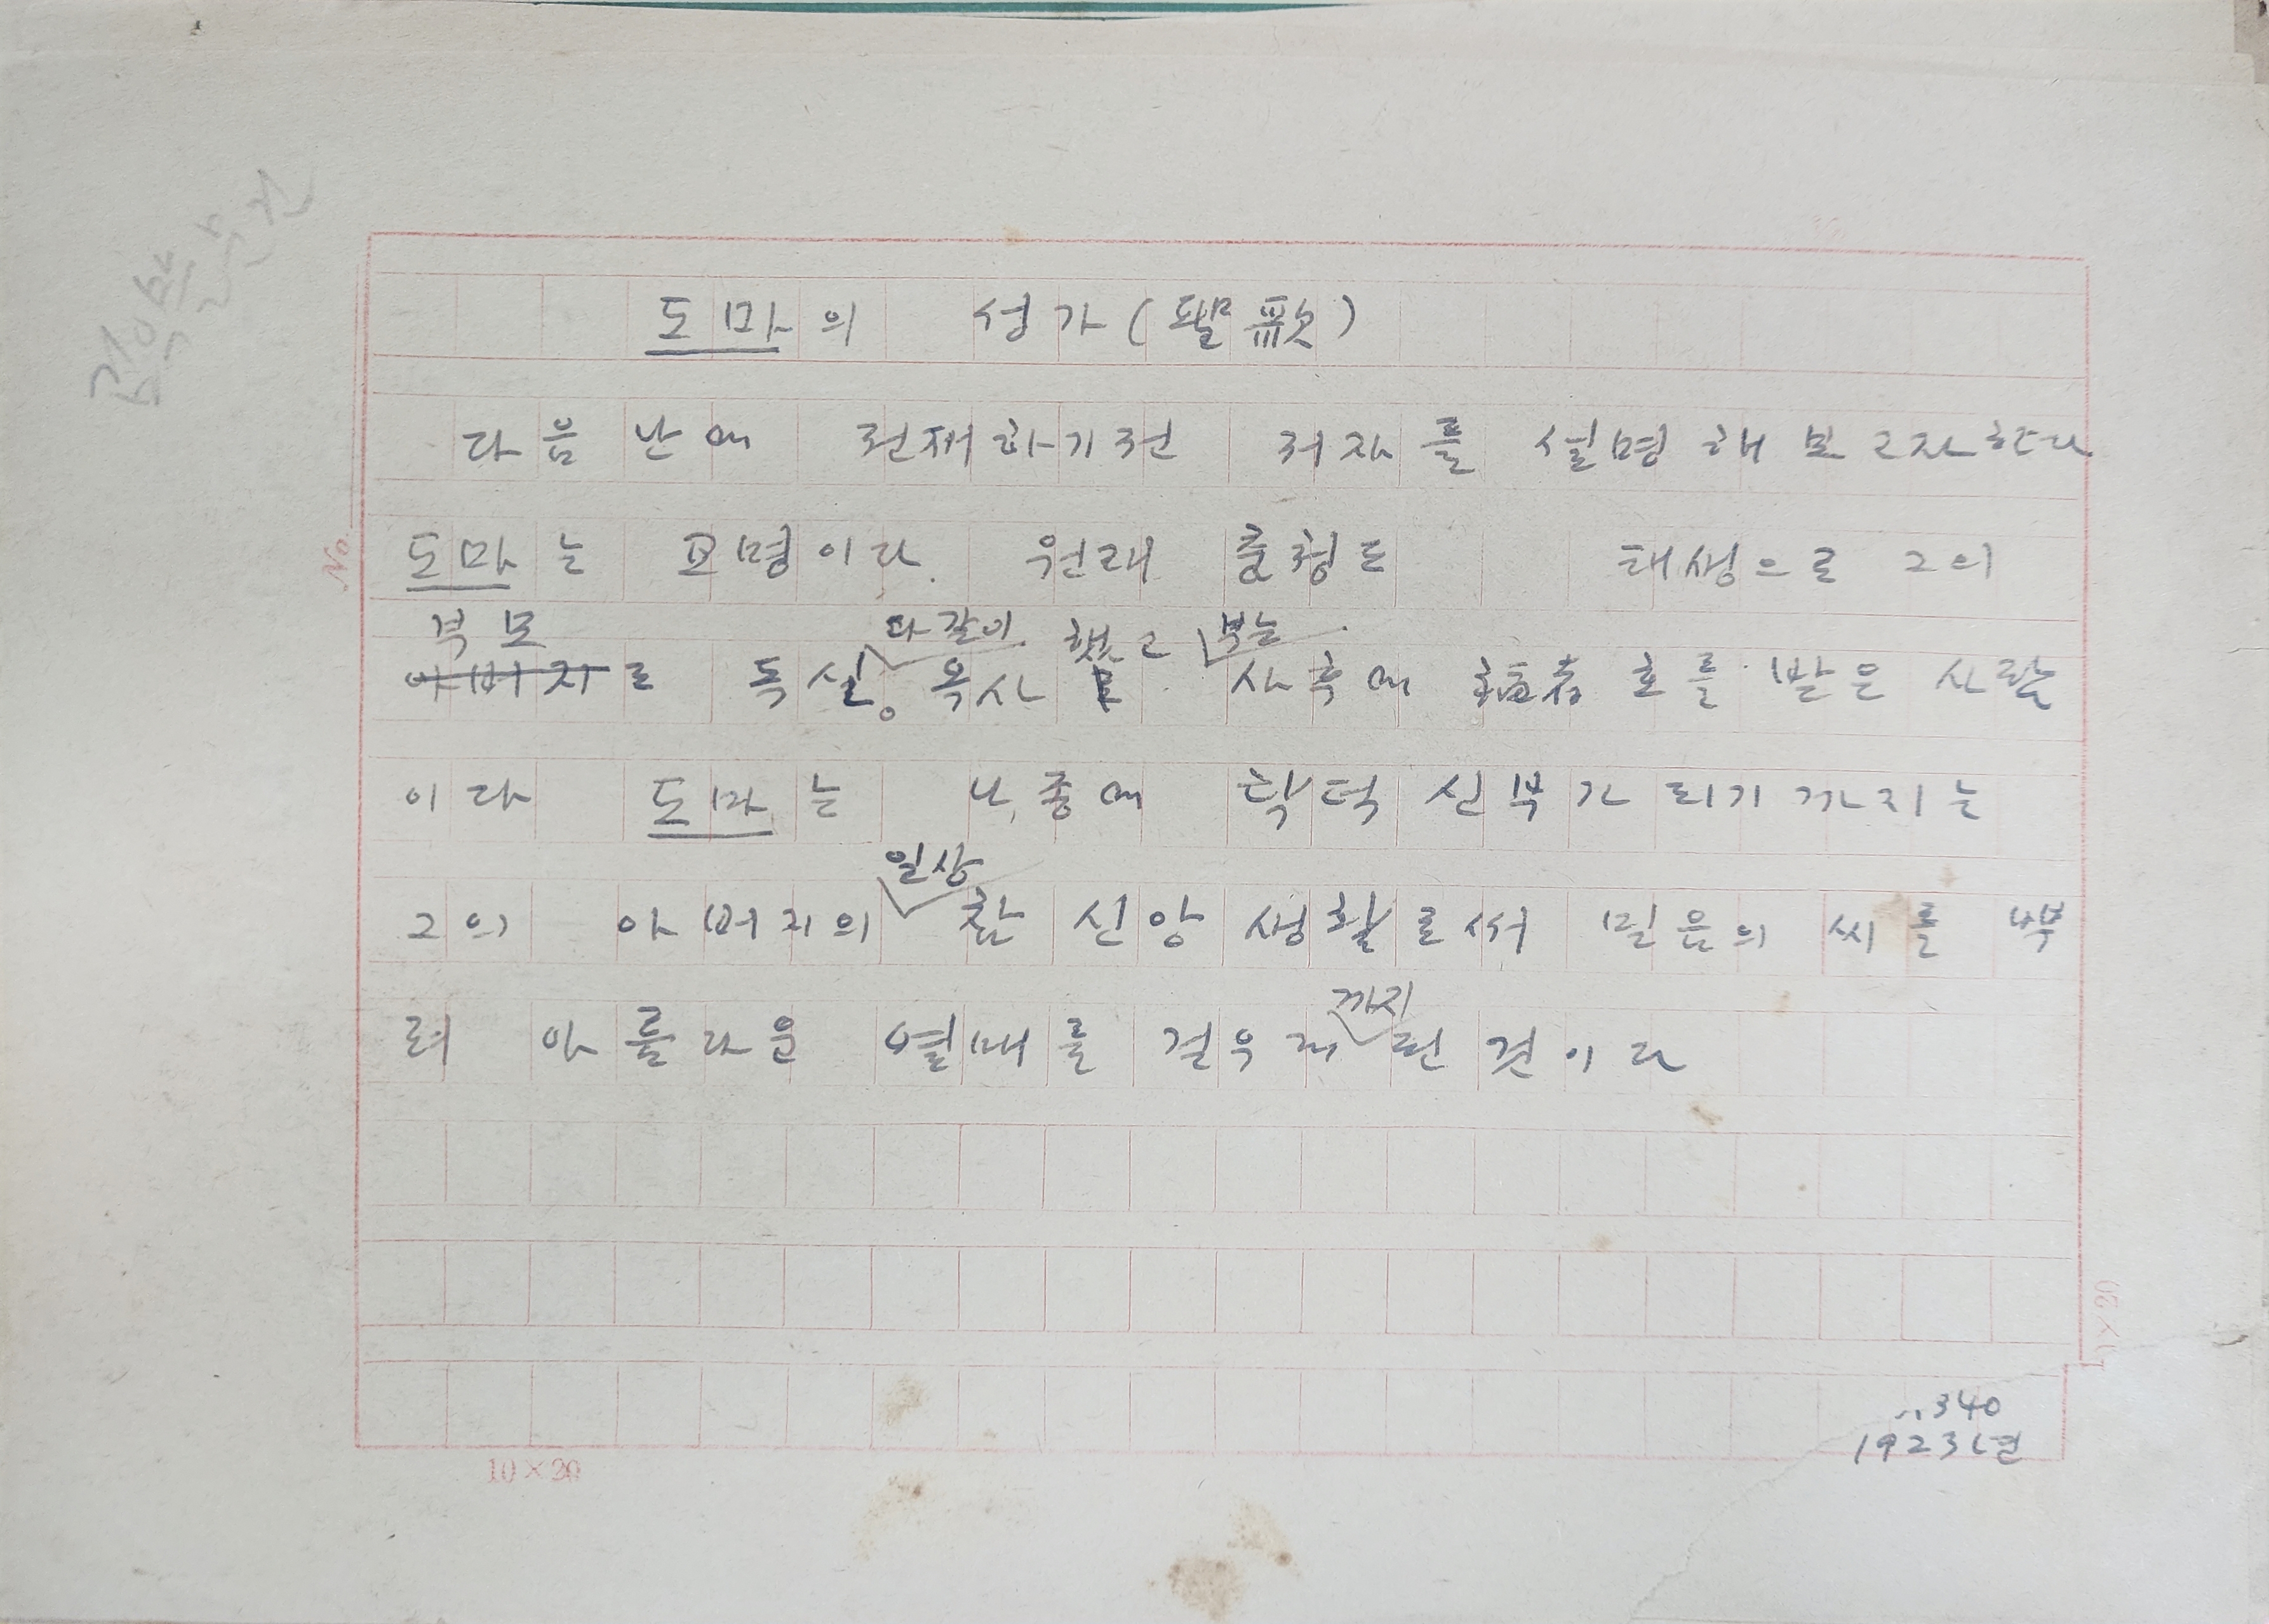 도마의 성가(
다음 난에 전재하기전 저자를 설명해보고자한다
도마는 교명이다. 원래 충청도 태생으로 그의
부모
다같이 했고 부는
아버지로 독실。옥사 사후에 호를 받은 사람
이다 도마는 나중에 탁덕 신부가 되기까지는
일상
그의 아버지의 참 신앙 생활로써 믿음의 씨를 뿌
까지
려 아름다운 열매를 걷우게 된 것이다
340
1923년
No.
10×20